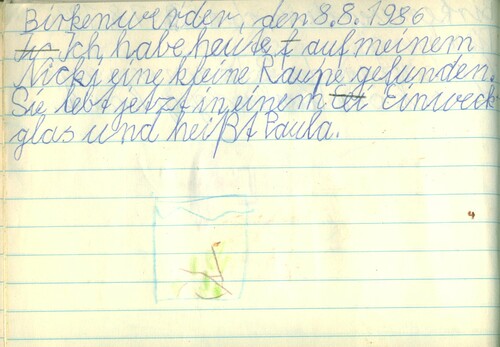 Birkenwerder, den 8.8.1986
Ich habe heute auf meinem
Nicki eine kleine Raupe gefunden.
Sie lebt jetzt in einem Einweck
glas und heißt Paula.